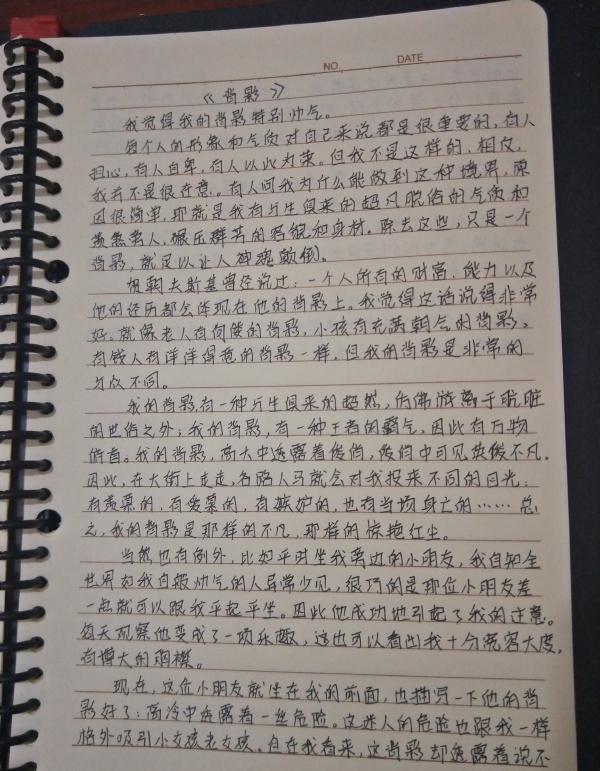 NO. DATE
《背影》
我觉得我的背影特别帅气。
每个人的形象和气质对自己来说都是很重要的，有人
担心，有人自卑，有人以此为荣。但我不是这样的，相反，
我并不是很在意。有人问我为什么能做到这种境界，原
因很简单，那就是我有与生俱来的超凡脱俗的气质和
羡煞常人、碾压群芳的容貌和身材。除去这些，只是一个
背影，就足以让人神魂颠倒。
但朝夫斯基曾经说过：一个人所有的财富、能力以及
他的经历都会体现在他的背影上。我觉得这话说得非常
好，就像老人有佝偻的背影，小孩有充满朝气的背影，
有钱人有洋洋得意的背影一样，但我的背影是非常的
与众不同。
我的背影有一种与生俱来的超然，仿佛游离于肮脏
的世俗之外；我的背影，有一种王者的霸气，因此有万物
俯首。我的背影，高大中透露着俊俏，俊俏中可见英俊不凡。
因此，在大街上走走，各路人马就会对我投来不同的目光：
有羡慕的，有爱慕的，有嫉妒的，也有当场身亡的……总
之，我的背影是那样的不凡，那样的惊艳红尘。
当然也有例外，比如平时坐我旁边的小朋友，我自知全
世界如我自般帅气的人异常少见，很巧的是那位小朋友差
一点就可以跟我平起平坐。因此他成功地引起了我的注意。
每天观察他变成了一项乐趣，这也可以看出我十分宽容大度，
有博大的胸襟。
现在，这位小朋友就坐在我的前面，也描写一下他的背
影好了：高冷中透露着一丝危险。这迷人的危险也跟我一样
格外吸引小女孩老女孩。但在我看来，这背影却透露着说不